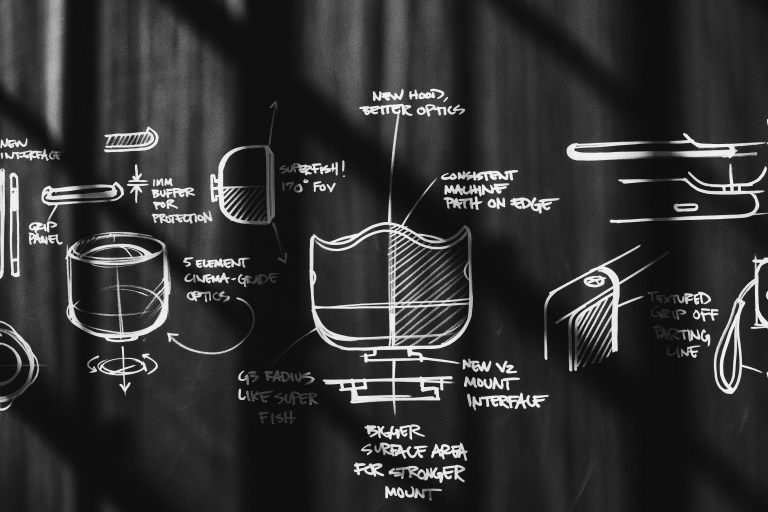 NEW
INTERFACE
GRIP
PANEL
1MM
BUFFER
FOR
PROTECTION
SUPERFISH!
170° FOV
5 ELEMENT
CINEMA-GRADE
OPTICS
NEW HOOD,
BETTER OPTICS
CONSISTENT
MACHINE
PATH ON EDGE
G3 RADIUS
LIKE SUPER
FISH
NEW V2
MOUNT
INTERFACE
BIGGER
SURFACE AREA
FOR STRONGER
MOUNT
TEXTURED
GRIP OFF
PARTING
LINE